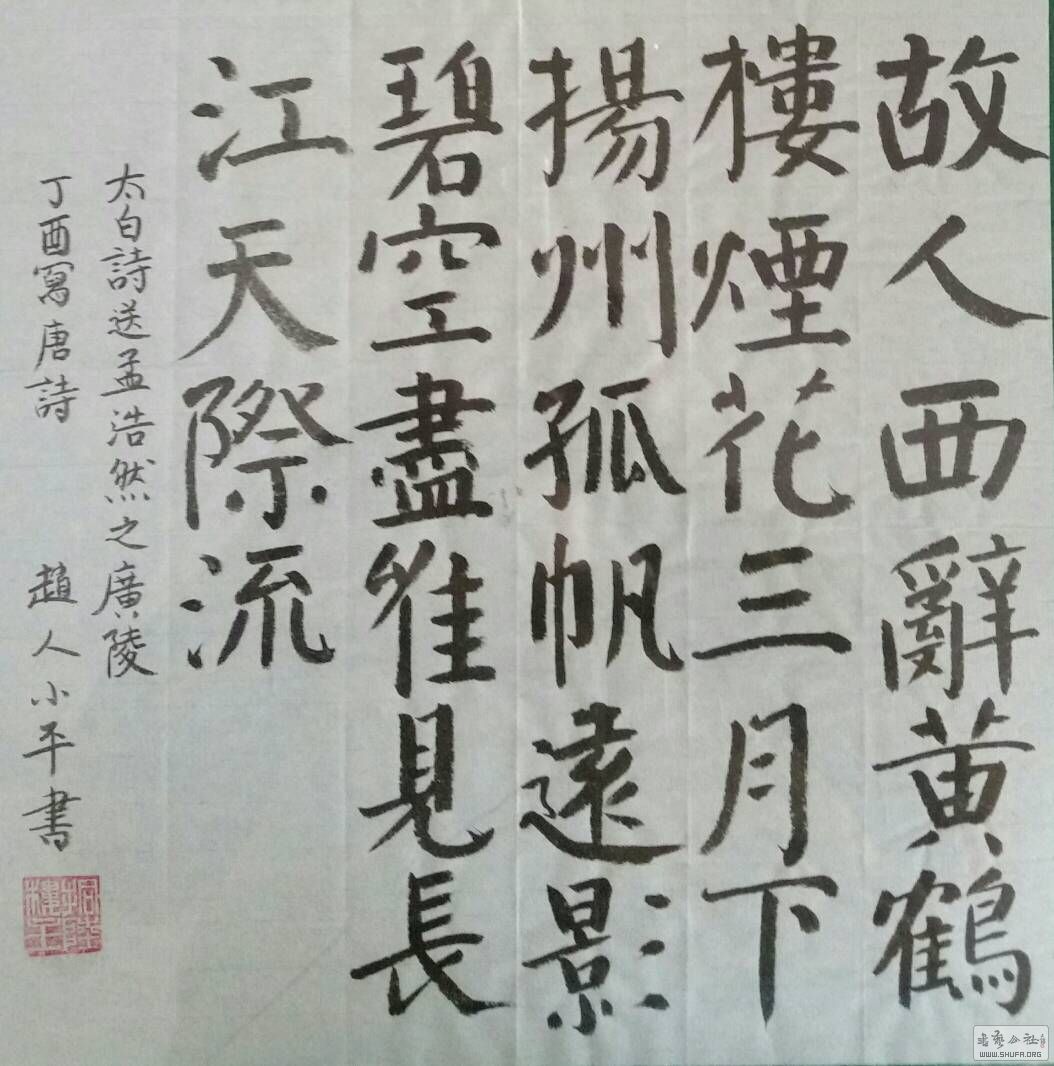 故人西辭黄鶴
樓煙花三月下
揚州孤帆遠影
碧空盡惟見長
江天際流
太白詩送孟浩然之廣陵
丁酉寫唐詩 趙人小平書
WWW.SHUFA.ORG